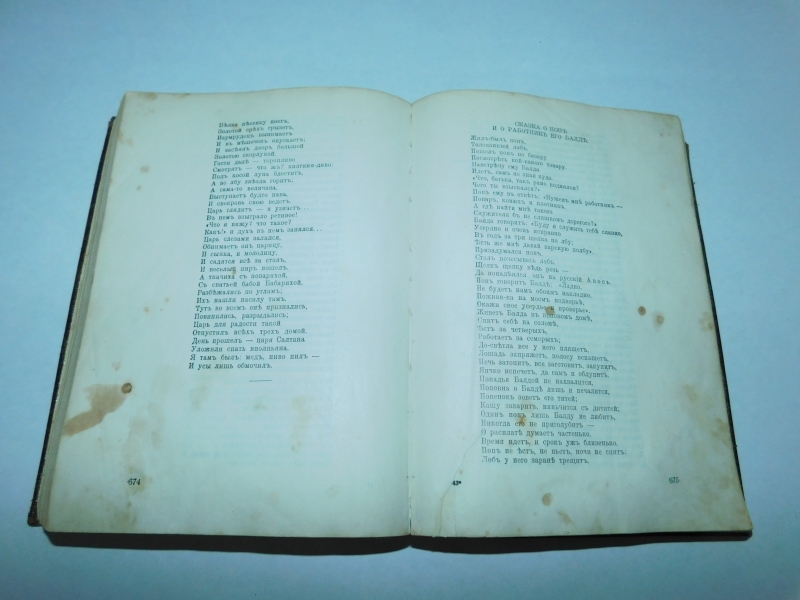 Бѣлка пѣсенку поетъ,
Золотой орѣхъ грызетъ,
Изумрудецъ вынимаетъ
И въ мѣшечекъ опускаетъ;
И засѣянъ дворъ большой
Золотою скорлупой.
Гости далѣ — торопливо
Смотрятъ — что жъ? княгиня-диво:
Подъ косой луна блеститъ,
А во лбу звѣзда горитъ;
А сама-то величава,
Выступаетъ будто пава,
И свекровь свою ведетъ.
Царь глядитъ — и узнаетъ...
Въ немъ взыграло ретивое!
«Что я вижу? что такое?
Какъ!» и духъ въ немъ занялся...
Царь слезами залился,
Обнимаетъ онъ царицу,
И сынка, и молодицу,
И садятся всѣ за столъ,
И веселый пиръ пошелъ.
А ткачиха съ поварихой,
Съ сватьей бабой Бабарихой
Разбѣжались по угламъ;
Ихъ нашли насилу тамъ.
Тутъ во всемъ онѣ признались,
Повинились, разрыдались;
Царь для радости такой
Отпустилъ всѣхъ трехъ домой.
День прошелъ — царя Салтана
Уложили спать вполпьяна.
Я тамъ былъ: медъ, пиво пилъ —
И усы лишь обмочилъ.
674
СКАЗКА О ПОПѢ
И О РАБОТНИКѢ ЕГО БАЛДѢ.
Жилъ-былъ попъ,
Толоконный лобъ.
Пошелъ попъ по базару
Посмотрѣть кой-какого товару.
Навстрѣчу ему Балда
Идетъ, самъ не зная куда.
«Что, батька, такъ рано поднялся?
Чего ты взыскался?»
Попъ ему въ отвѣтъ: «Нуженъ мнѣ работникъ —
Поваръ, конюхъ и плотникъ.
А гдѣ найти мнѣ такого
Служителя не слишкомъ дорогого?»
Балда говоритъ: «Буду я служить тебѣ славно,
Усердно и очень исправно
Въ годъ за три щелка по лбу;
Ѣсть же мнѣ давай варёную полбу».
Призадумался попъ,
Сталъ почесывать лобъ.
Щелкъ щелку вѣдь розь —
Да понадѣялся онъ на русскій авось.
Попъ говоритъ Балдѣ: «Ладно.
Не будетъ намъ обоимъ накладно.
Поживи-ка на моемъ подворьѣ,
Окажи свое усердье и проворье».
Живетъ Балда въ поповомъ домѣ,
Спитъ себѣ на соломѣ,
Ѣстъ за четверыхъ,
Работаетъ за семерыхъ;
До-свѣтла все у него пляшетъ,
Лошадь запряжетъ, полосу вспашетъ,
Печь затопитъ, все заготовитъ, закупитъ,
Яичко испечетъ, да самъ и облупитъ.
Попадья Балдой не нахвалится,
Поповна о Балдѣ лишь и печалится,
Попенокъ зоветъ его тятей;
Кашу заваритъ, няньчится съ дитятей;
Одинъ попъ лишь Балду не любитъ,
Никогда его не приголубитъ —
О расплатѣ думаетъ частенько,
Время идетъ, и срокъ ужъ близенько.
Попъ не ѣстъ, не пьетъ, ночи не спитъ:
Лобъ у него заранѣ трещитъ.
43*
675